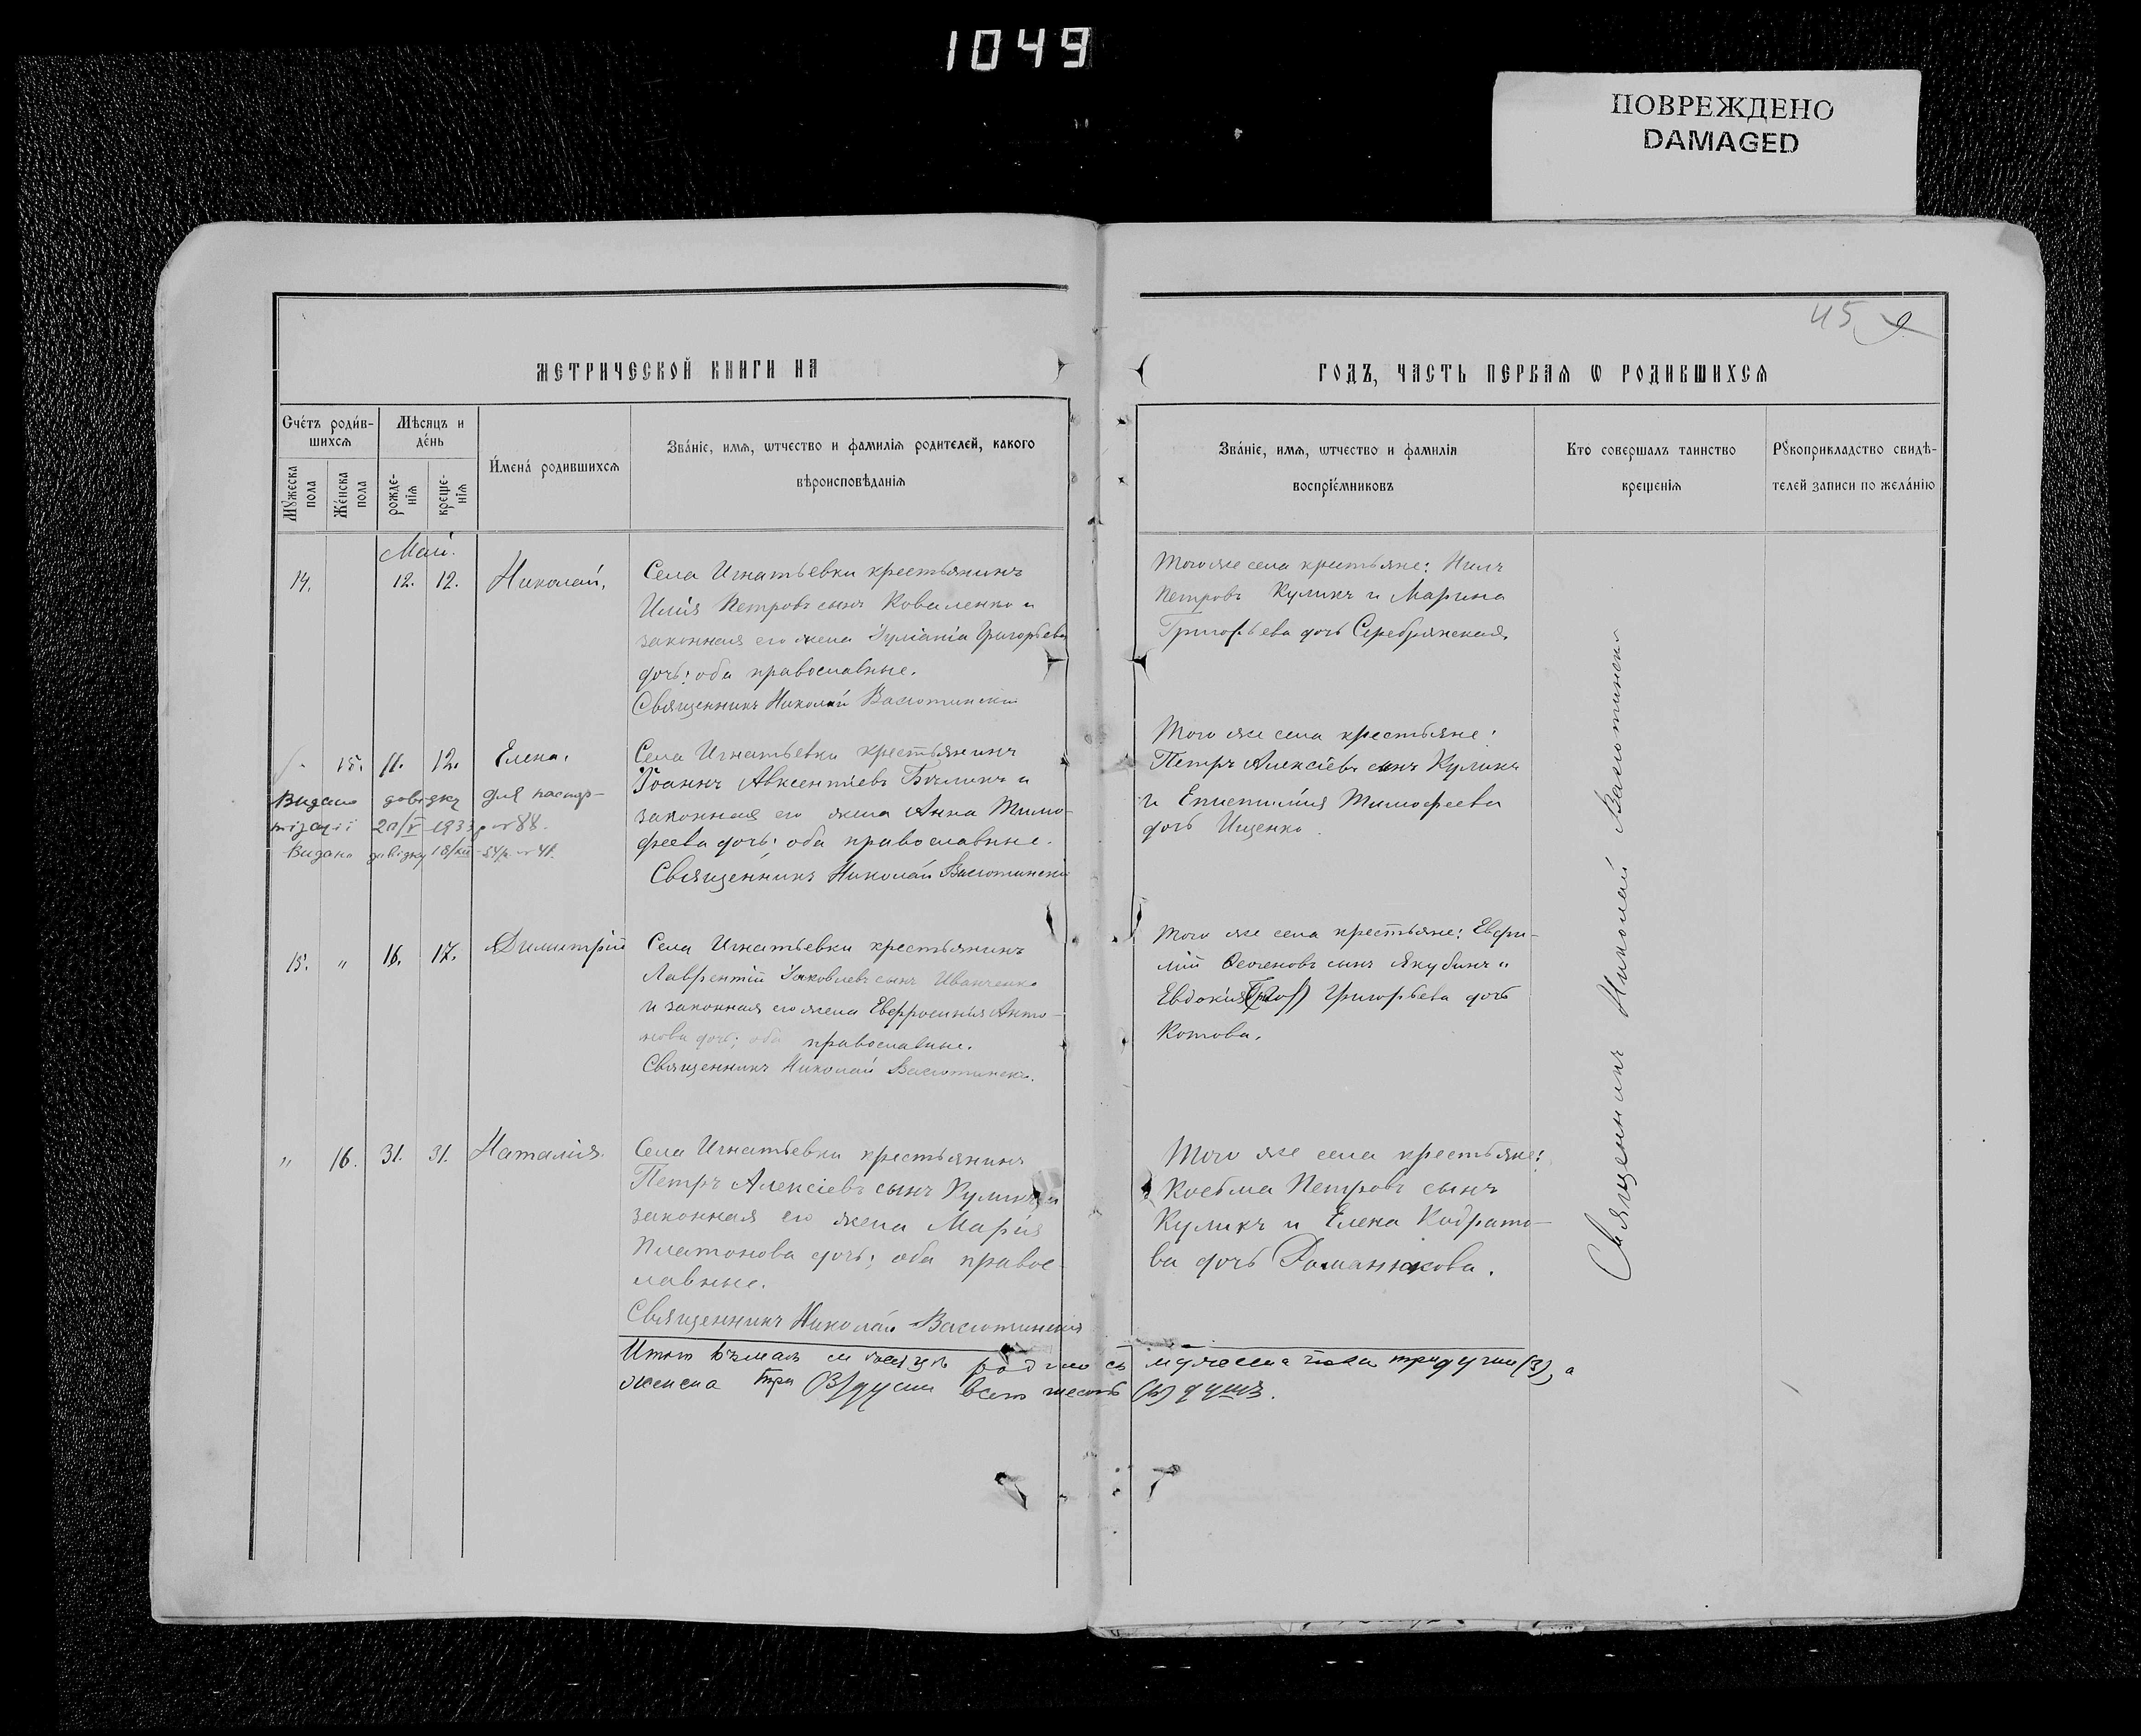 1049
ПОВРЕЖДЕНО
DAMAGED
45
МЕТРИЧЕСКОЙ КНИГИ НА
ГОДЪ, ЧАСТЬ ПЕРВАѦ Ѡ РОДИВШИХСѦ
Счéтъ роди́в-
шихсѧ
Мѣсяцъ и
дéнь
Мꙋжеска
пола
Жéнска
пола
рожде-
нїѧ
креще-
нїѧ
И́мена́ родившихсѧ
Зва́нїе, имѧ, ѿчество и фамилїѧ родителей, какого
вѣроисповѣданїѧ
Зва́нїе, имѧ, ѿчество и фамилїѧ
воспрїе́мниковъ
Кто совершалъ таинство
крещенїѧ
Рꙋкоприкладство свидѣ-
телей записи по жела́нїю
Май.
14. 12. 12. Николай,
Села Игнатьевки крестьянинъ
Илія Петровъ сынъ Коваленко и
законная его жена Іуліанія Григорьева
дочь; оба православные.
Священникъ Николай Васютински
Того же села крестьяне: Нилъ
Петровъ Куликъ и Марина
Григорьева дочь Серебрянская,
15. 11. 12. Елена.
Видано довідку для паспор-
тізації 20/V 1933 р № 88.
Видано довідку 18/XII
Села Игнатьевки крестьянинъ
Іоаннъ Авксентіевъ Бѣликъ и
законная его жена Анна Тимо-
феева дочь; оба православные.
Священникъ Николай Васютински
Того же села крестьяне:
Петръ Алексіевъ сынъ Куликъ
и Епистимія Тимофеева
дочь Ищенко.
15. " 16. 17. Димитрій
Села Игнатьевки крестьянинъ
Лаврентій Іаковлевъ сынъ Иванченко
и законная его жена Евфросинія Анто-
нова дочь; оба православные.
Священникъ Николай Васютински.
Того же села крестьяне: Евфи-
мій сынъ Якубинъ и
Евдокія Григорьева дочь
Котова.
" 16. 31. 31. Наталія.
Села Игнатьевки крестьянинъ
Петръ Алексіевъ сынъ Куликъ и
законная его жена Марія
Платонова дочь; оба правос-
лавные.
Священникъ Николай Васютинскій
Того же села крестьяне:
Косьма Петровъ сынъ
Куликъ и Елена Кодрато-
ва дочь Романюкова.
Священникъ Николай Васютински
Итого въ маѣ мѣсяцѣ родилось мужеска пола три души (3), а
женска три (3) души всего шесть (6) душъ.